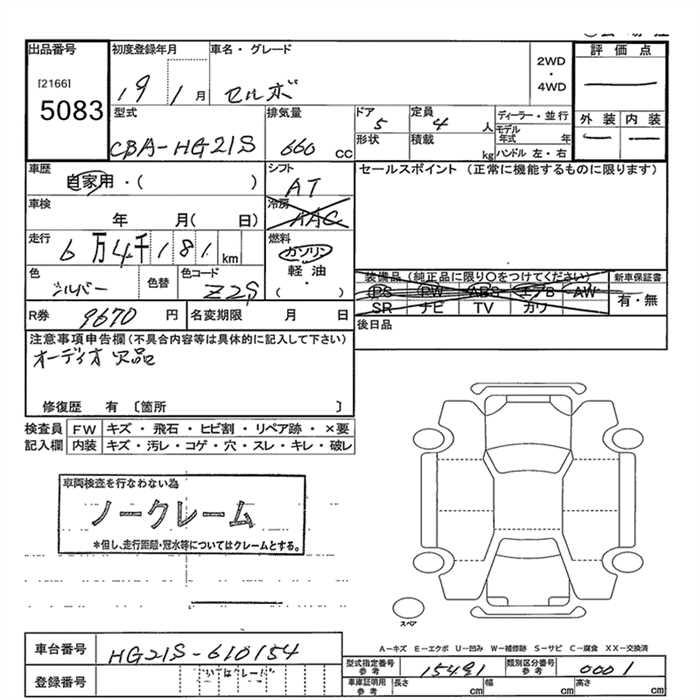 出品番号
[2166]
5083
初度登録年月
19 1月
車名・グレード
セルボ
2WD
・
4WD
評価点
外装 内装
型式
CBA-HG21S
排気量
660 CC
ドア
5
形状
定員
4 人
積載
kg
ディーラー・並行
モデル年式 年
ハンドル 左・右
車歴
自家用・( )
シフト
AT
セールスポイント (正常に機能するものに限ります)
車検
年 月( 日)
冷房
AAC
走行
6万4千181km
燃料
ガソリン
軽油・
( )
色
シルバー
色替
色コード
Z2S
装備品(純正品に限り○をつけてください)
PS PW ABS エアB AW
SR ナビ TV カワ
新車保証書
有・無
R券 9670 円
名変期限 月 日
後日品
注意事項申告欄(不具合内容等は具体的に記入して下さい)
オーディオ欠品
修復歴 有 〔箇所 〕
検査員 FW キズ・飛石・ヒビ割・リペア跡・×要
記入欄 内装 キズ・汚レ・コゲ・穴・スレ・キレ・破レ
車両検査を行なわない為
ノークレーム
*但し、走行距離・冠水等についてはクレームとする。
スペア
A－キズ E－エクボ U－凹み W－補修跡 S－サビ C－腐食 XX－交換済
車台番号 HG21S-610154
登録番号
型式指定番号
参考
15491
類別区分番号
参考
0001
車庫証明用
参考
長さ cm 幅 cm 高さ cm